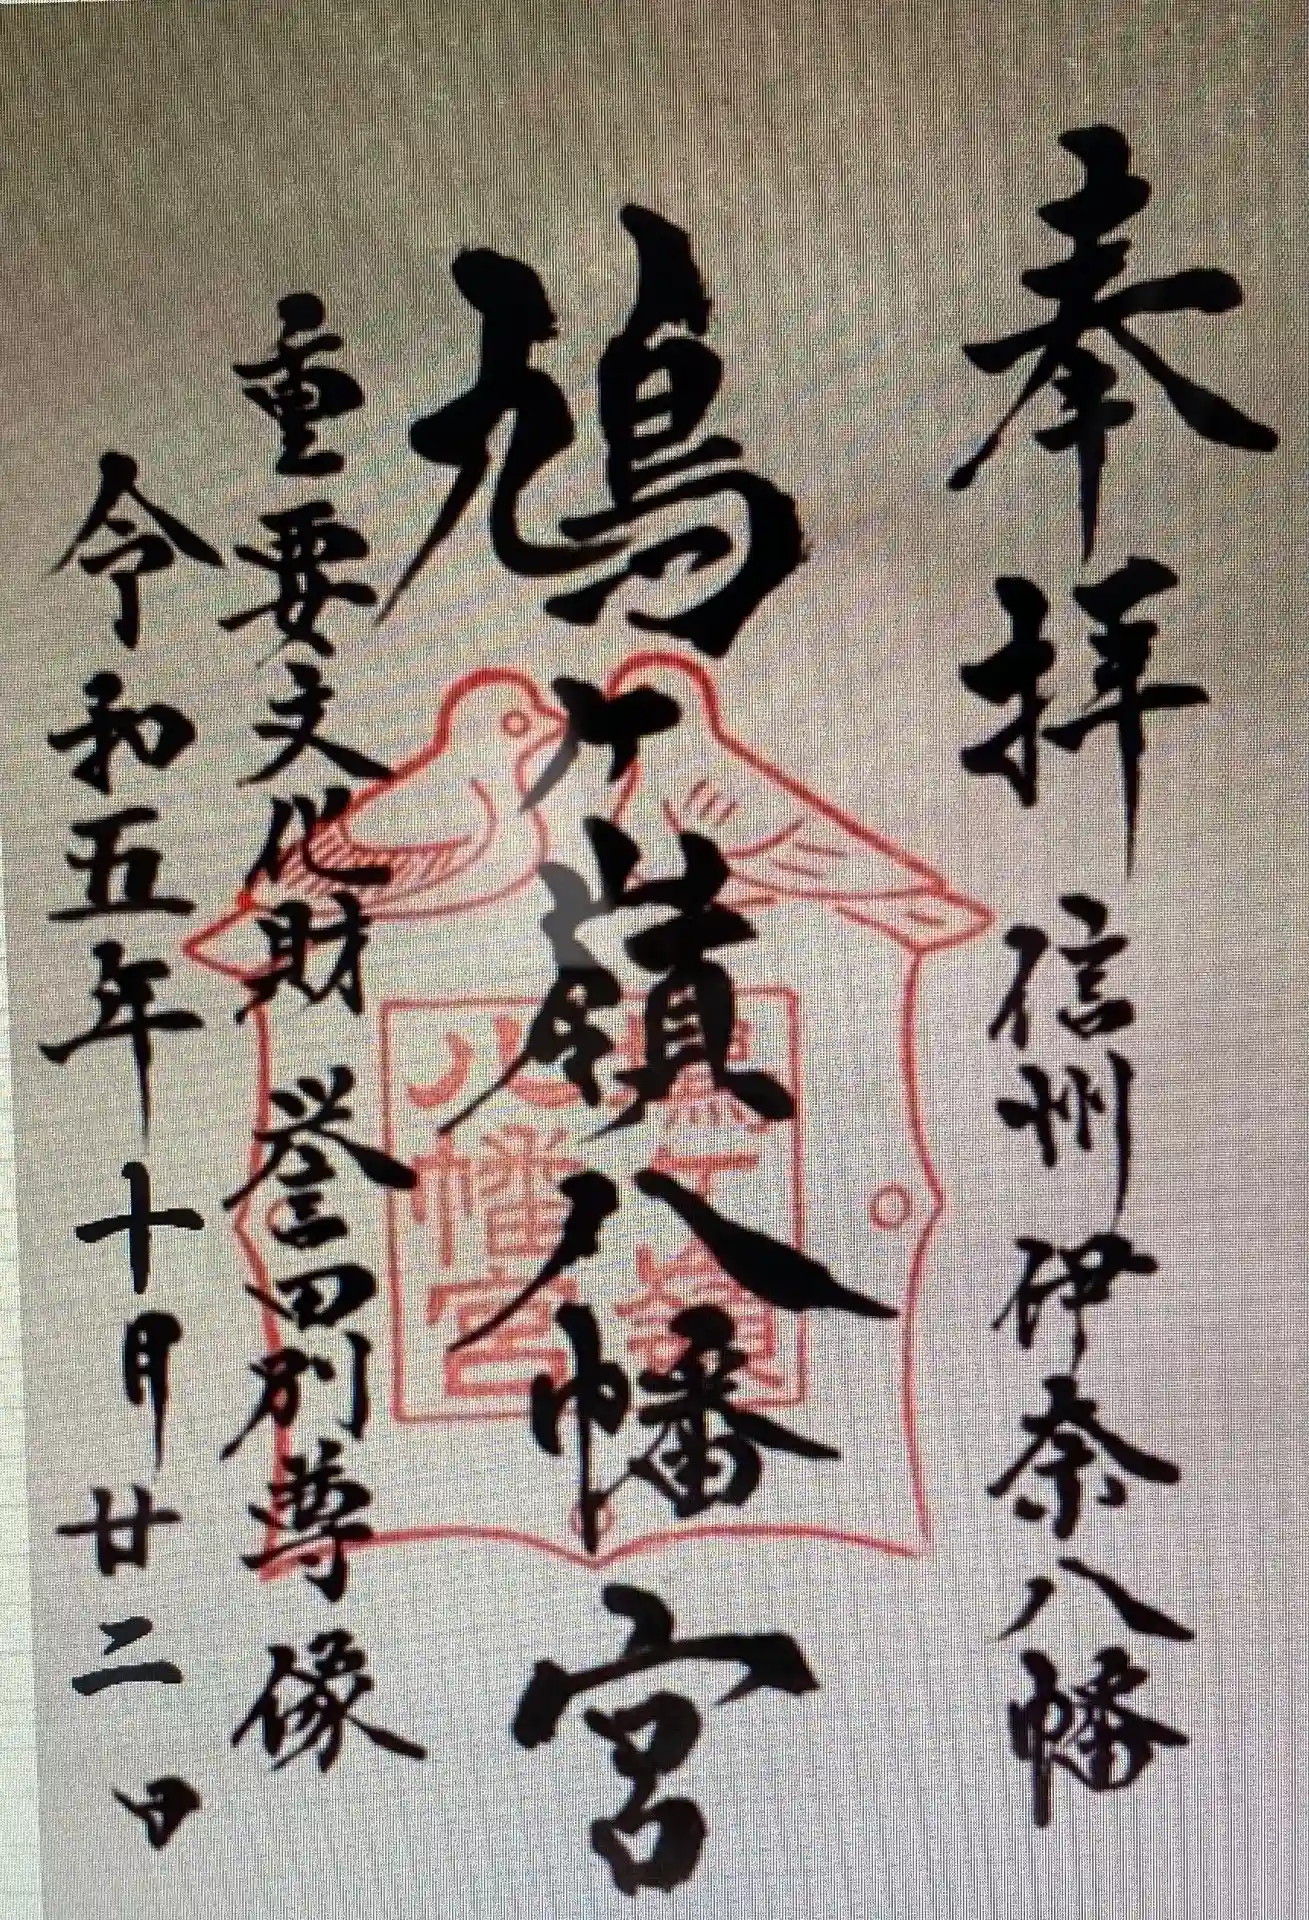 奉拝 信州伊奈八幡
鳩ヶ嶺八幡宮
鳩ヶ嶺
八幡宮
重要文化財 誉田別尊像
令和五年十月廿二日